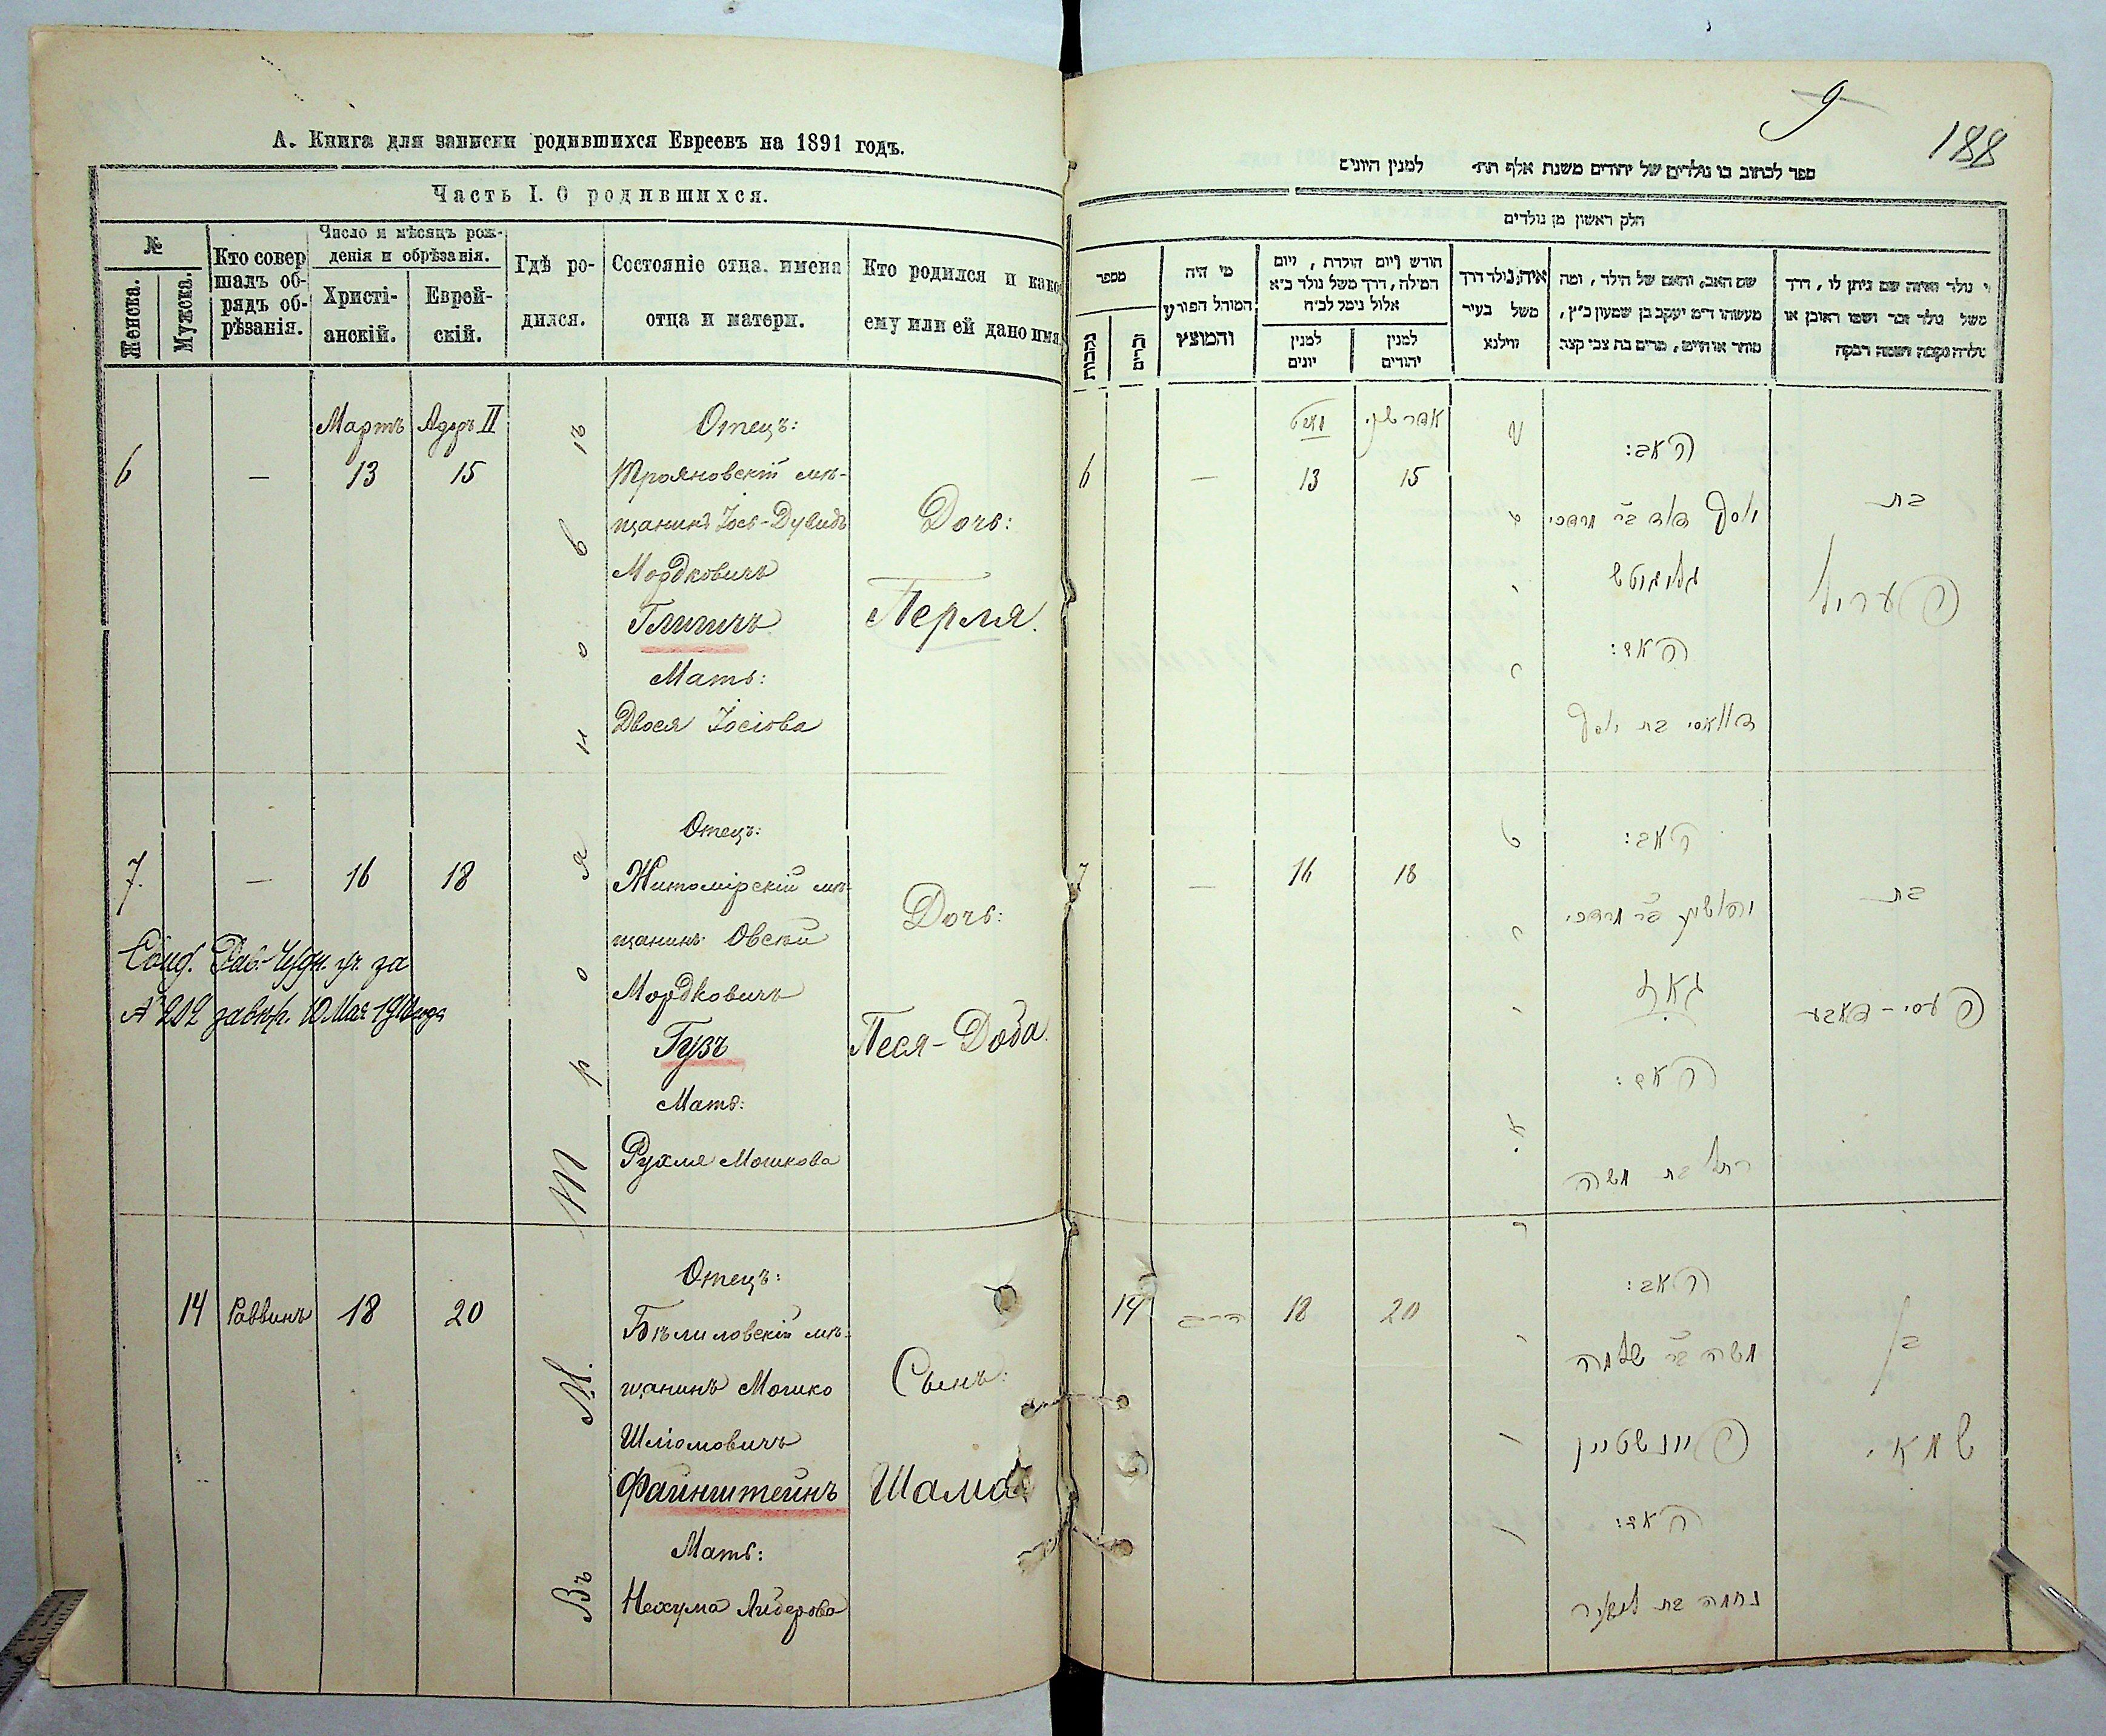 А. Книга для записки родившихся Евреевъ на 1891 годъ.
Часть I. О родившихся.
№
Женска.
Мужска.
Кто совершалъ обрядъ обрѣзанія.
Число и мѣсяцъ рожденія и обрѣзанія.
Христіанскій.
Еврейскій.
Гдѣ родился.
Состояніе отца, имена отца и матери.
Кто родился и какое ему или ей дано имя
Въ М. Трояновъ
Мартъ Адеръ II
6 — 13 15
Отецъ:
Трояновскій мѣ-
щанинъ Іось-Дувидъ
Мордковичъ
Глигичъ
Мать:
Двося Іосіова
Дочь:
Перля.
7. — 16 18
Отецъ:
Житомірскій мѣ-
щанинъ Овсѣй
Мордковичъ
Гузъ
Мать:
Рухля Мошкова
Дочь:
Песя-Доба.
14 Раввинъ 18 20
Отецъ:
Бѣлиловскій мѣ-
щанинъ Мошко
Шліомовичъ
Файнштейнъ
Мать:
Нехума Лидерова
Сынъ:
Шама
9
188
ספר לכתוב בו נולדים של יהודים משנת אלף תת׳ למנין היונים
חלק ראשון מן נולדים
מספר
נקבות
זכרים
מי היה
המוהל הפורע
והמוצץ
חודש ויום הולדת, ויום
המילה, דרך משל נולד כ״א
אלול נימל לכ״ח
למנין
יונים
למנין
יהודים
איה נולד דרך
משל בעיר
ווילנא
שם האב, והאם של הילד, ומה
מעשהו ד״מ יעקב בן שמעון כ״ץ,
סוחר או חייט, מרים בת צבי קצב
מי נולד ואיזה שם ניתן לו, דרך
משל נולד זכר ושמו ראובן או
נולדה נקבה ושמה רבקה
אדר שני
6 — 13 15
האב:
יוסף דוד ב״ר מרדכי
גליגיטש
האם:
דוואסי בת יוסף
בת
פעריל
7 — 16 18
האב:
יהושע ב״ר מרדכי
גאז
האם:
רחל בת משה
בת
פעסי-דאבע
14 הרב 18 20
האב:
משה ב״ר שלמה
פיינשטיין
האם:
נחמה בת
בן
שמאי